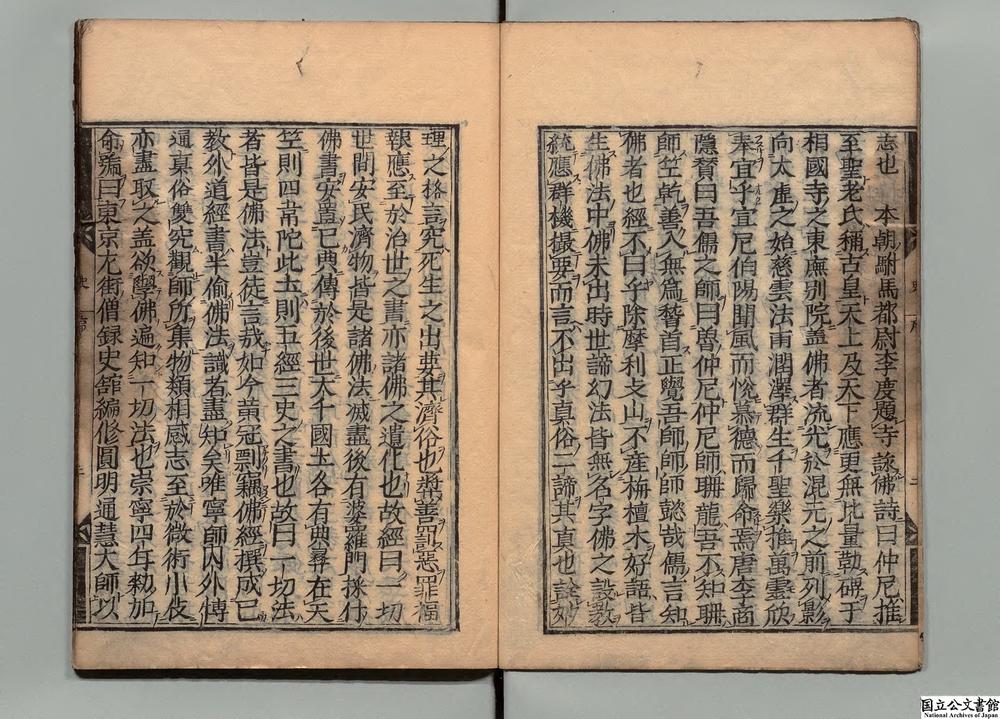 志也　本朝駙馬都尉李度題寺詠佛詩曰仲尼推
至聖老氏稱古皇天上及天下應更無比量勒碑于
相國寺之東廡別院蓋佛者流光於混元之前列影
向太虛之始慈雲法雨潤澤群生千聖樂推萬靈欣
奉宜乎宣尼伯陽聞風而悅慕德而歸命焉唐李商
隱賛曰吾儒之師曰魯仲尼仲尼師聃龍吾不知聃
師竺乾善入無為稽首正覺吾師師師懿哉儒言知
佛者也經不曰乎除摩利支山不産栴檀木好語皆
生佛法中佛未出時世諦幻法皆無名字佛之設教
統應群機撮要而言不出乎真俗二諦其真也詮妙
理之格言究死生之出要其濟俗也舉善罰惡罪福
報應至於治世之書亦諸佛之遺化也故經曰一切
世間安民濟物皆是諸佛法滅盡後有婆羅門採付
佛書安置己典傳於後世大千國土各有典尋在天
竺則四韋陀此土則五經三史之書也故曰一切法
者皆是佛法豈徒言哉如今黄冠剽竊佛經撰成已
教外道經書半偷佛法識者盡知矣唯寧師内外博
通真俗雙究觀師所集物類相感志至於微術小伎
亦盡取之蓋欲學佛遍知一切法也崇寧四年勑加
命號曰東京左街僧録史館編修圓明通慧大師以
国立公文書館
National Archives of Japan